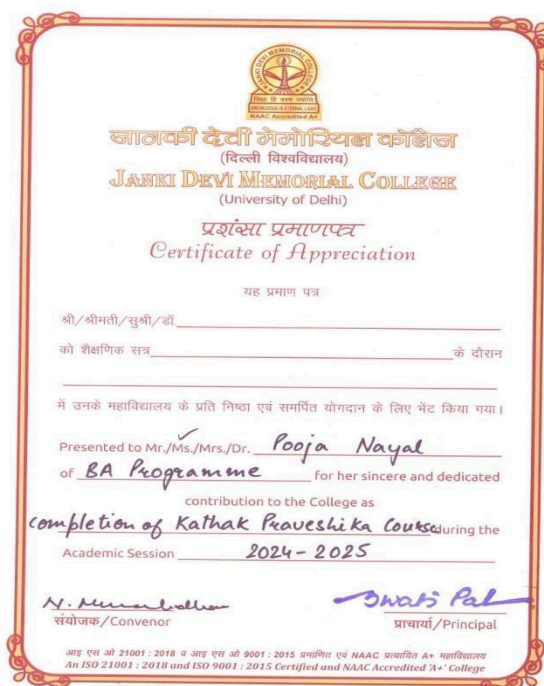 JANKI DEVI MEMORIAL COLLEGE
विद्या हि परमं ज्योति
KNOWLEDGE IS ETERNAL LIGHT
NAAC Accredited A+
जानकी देवी मेमोरियल कॉलेज
(दिल्ली विश्वविद्यालय)
JANKI DEVI MEMORIAL COLLEGE
(University of Delhi)
प्रशंसा प्रमाणपत्र
Certificate of Appreciation
यह प्रमाण पत्र
श्री/श्रीमती/सुश्री/डॉ.
को शैक्षणिक सत्र के दौरान
में उनके महाविद्यालय के प्रति निष्ठा एवं समर्पित योगदान के लिए भेंट किया गया।
Presented to Mr./Ms./Mrs./Dr. Pooja Nayal
of BA Programme for her sincere and dedicated
contribution to the College as
completion of Kathak Praveshika Course during the
Academic Session 2024-2025
Swati Pal
संयोजक/Convenor प्राचार्या/Principal
आइ एस ओ 21001 : 2018 व आइ एस ओ 9001 : 2015 प्रमाणित एवं NAAC प्रत्यायित A+ महाविद्यालय
An ISO 21001 : 2018 and ISO 9001 : 2015 Certified and NAAC Accredited 'A+' College